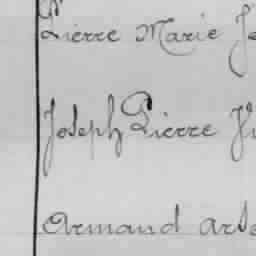 Pierre Marie
Joseph Pierre
Armand